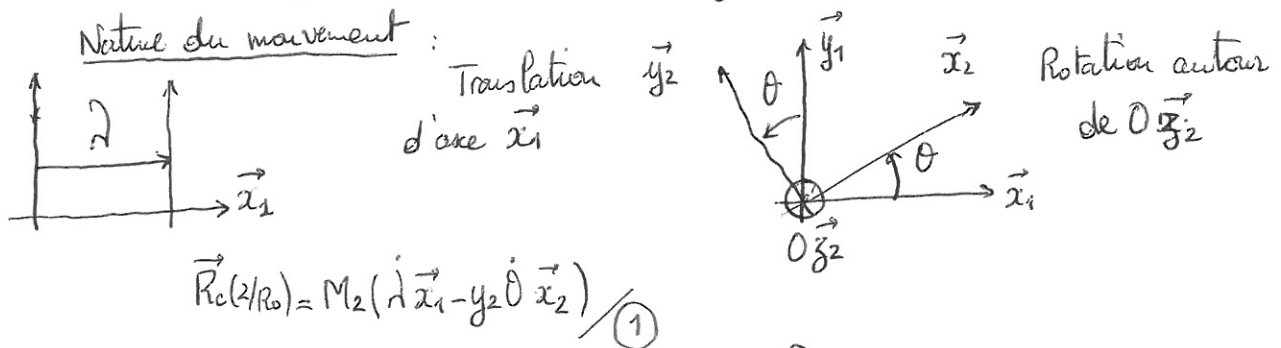 Nature du mouvement :
Translation
d'axe x⃗1
λ
x⃗1
y⃗2
θ
y⃗1
x⃗2
θ
x⃗1
Oz⃗2
Rotation autour
de Oz⃗2
R⃗c(2/R0) = M2(λ̇ x⃗1 - y2 θ̇ x⃗2) / 1